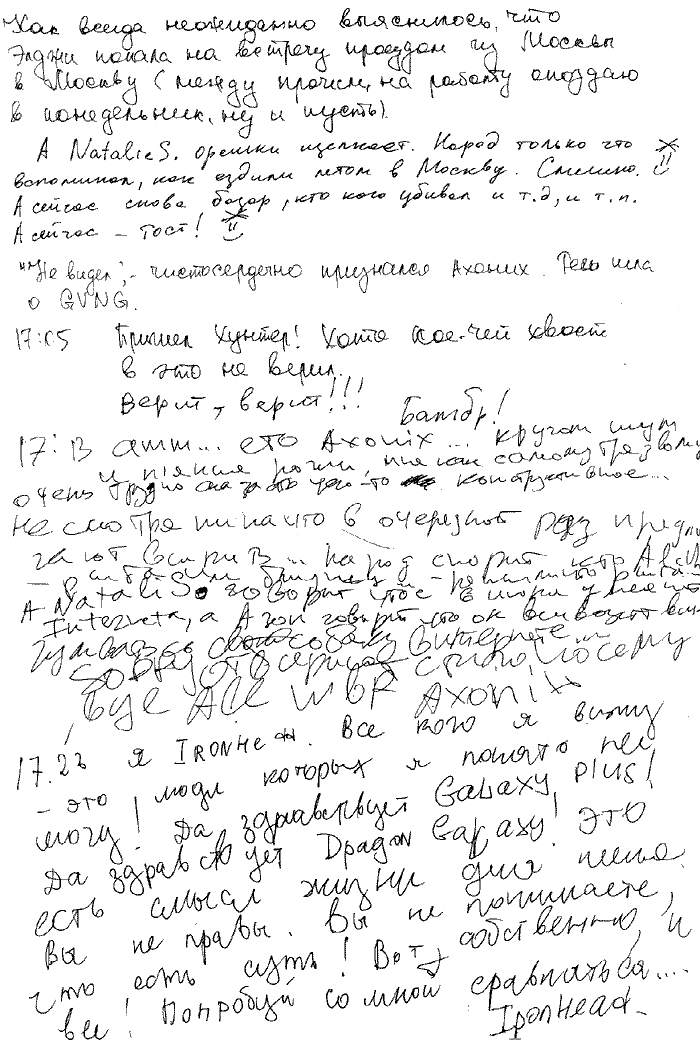 Как всегда неожиданно выяснилось, что
Элджи попала на встречу проездом из Москвы
в Москву (между прочим, на работу опоздаю
в понедельник, ну и пусть).
А NatalieS. орешки щелкает. Народ только что
вспоминал, как ездили летом в Москву. Смешно.
А сейчас снова базар, кто кого убивал и т.д, и т.п.
А сейчас – тост!
"Не видел", - чистосердечно признался Axonix. Речь шла
о GVNG.
17:05 Пришел Хунтер! Хотя кое-чей хвост
в это не верил.
Верит, верит!!!
17:13 аmm... ето Axonix... кругом шум
и пьяные рожи, мне как самому трезвому
очень трудно сказать что-то конструктивное...
не смотря ни на что в очередной раз предла
гают выпить... народ спорит кто
А NatalieS. говорит что в
Interneta, а говорит что он
собаки в интернете...
стило, посему
bye All WBR Axonix
17.23 я IRONHead. Все кого я вижу
– это люди которых я понять не
могу! Да здравствует GaLaxy PLUS!
Да здравствует Dragon Galaxy! ЭТО
есть смысл жизни для меня.
Вы не правы. Вы не понимаете,
что есть суть! Вот, собственно, и
все! Попробуй со мной сравниться....
IronHead-